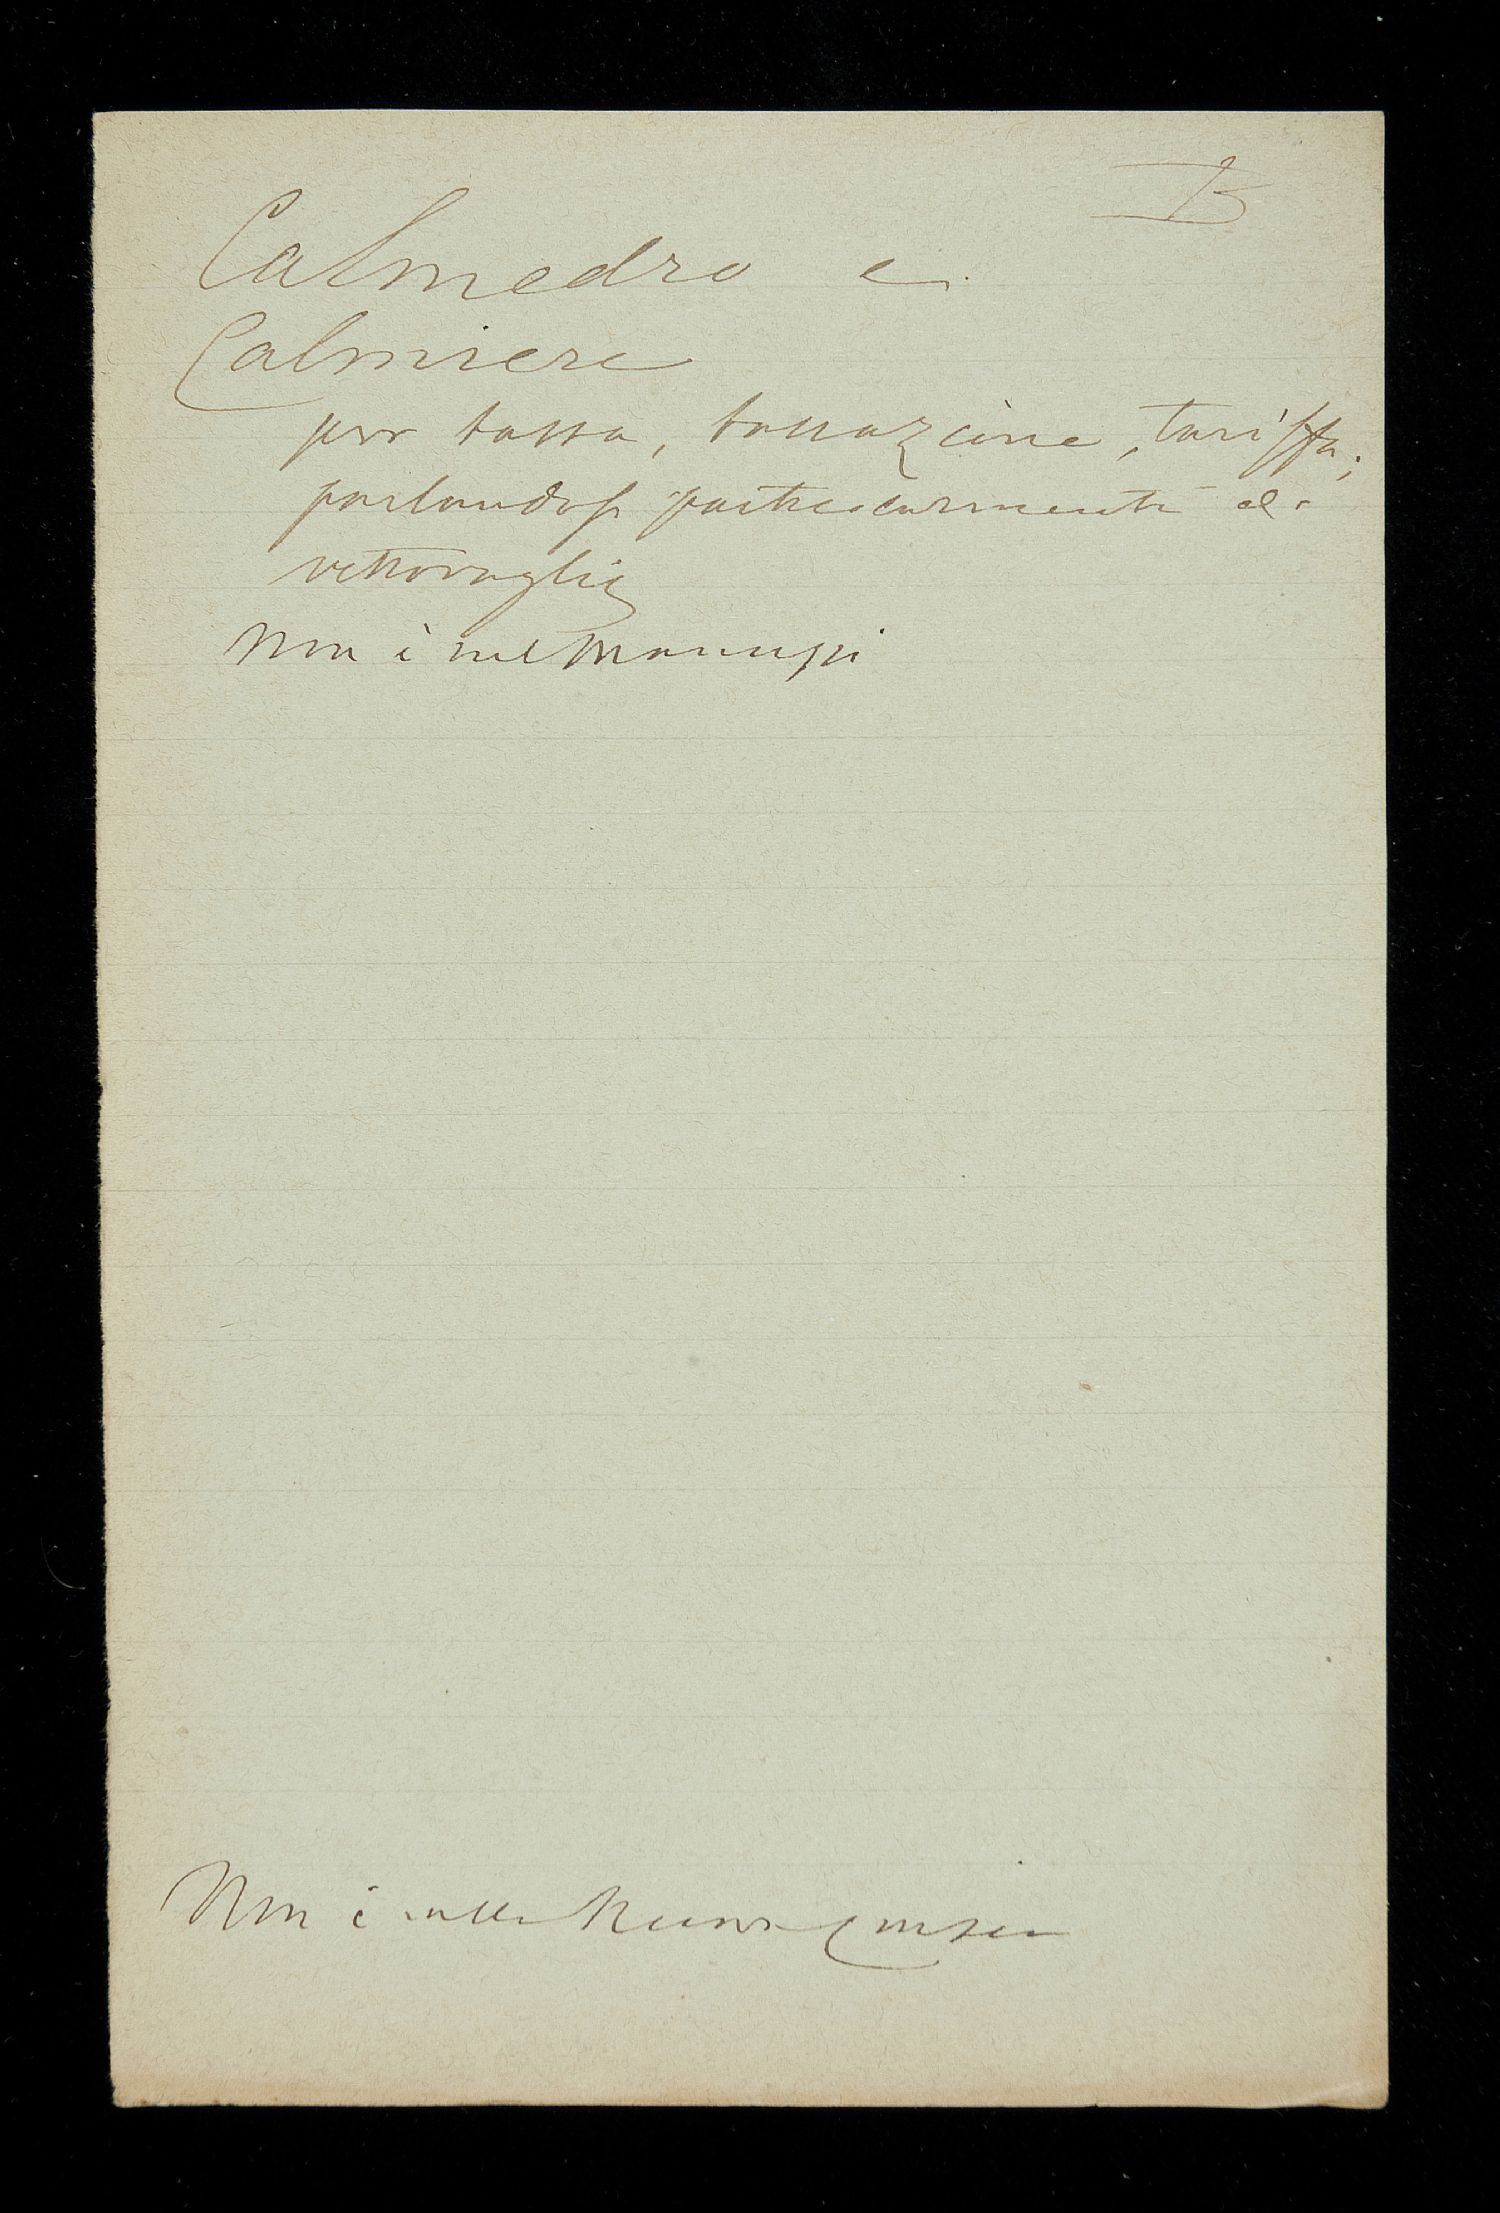 B
Calmedro e
Calmiere
per tassa, tassazione, tariffa;
parlandosi particolarmente di
vettovaglie
Non è nel Manuzzi
Non è nella Nuova Crusca